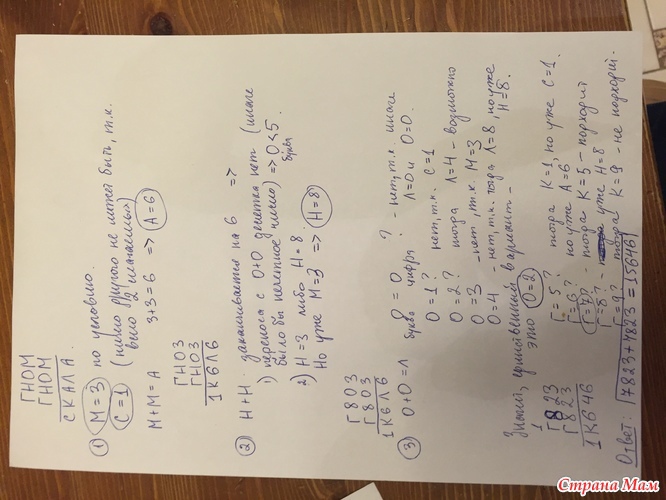 ГНОМ
ГНОМ
СКАЛА.
① М=3 по условию.
С=1 (число другого не может быть, т.к.
было 2 слагаемых)
М+М=А 3+3=6 => А=6
ГНО3
ГНО3
1К6Л6
② Н+Н заканчивается на 6 =>
1) переноса с О+О десятка нет (иначе
было бы нечетное число) => О<5
буква
2) Н=3 либо Н=8
Но уже М=3 => Н=8
Г8О3
Г8О3
1К6Л6
③ О+О=Л
О = 0 ? - нет, т.к. иначе
буква цифра Л=0 и О=0.
О=1? нет, т.к. С=1
О=2? тогда Л=4 - возможно
О=3 - нет, т.к. М=3
О=4 - нет, т.к. тогда Л=8, но уже
Н=8.
Значит, единственный вариант -
это О=2
1
Г823
Г823
1К646
Г=5? тогда К=1, но уже С=1.
Г=6? но уже А=6,
Г=7? - тогда К=5 - подходит
Г=8? - уже Н=8
Г=9? - тогда К=9 - не подходит.
Ответ: 7823+7823=15646
Страна Мам